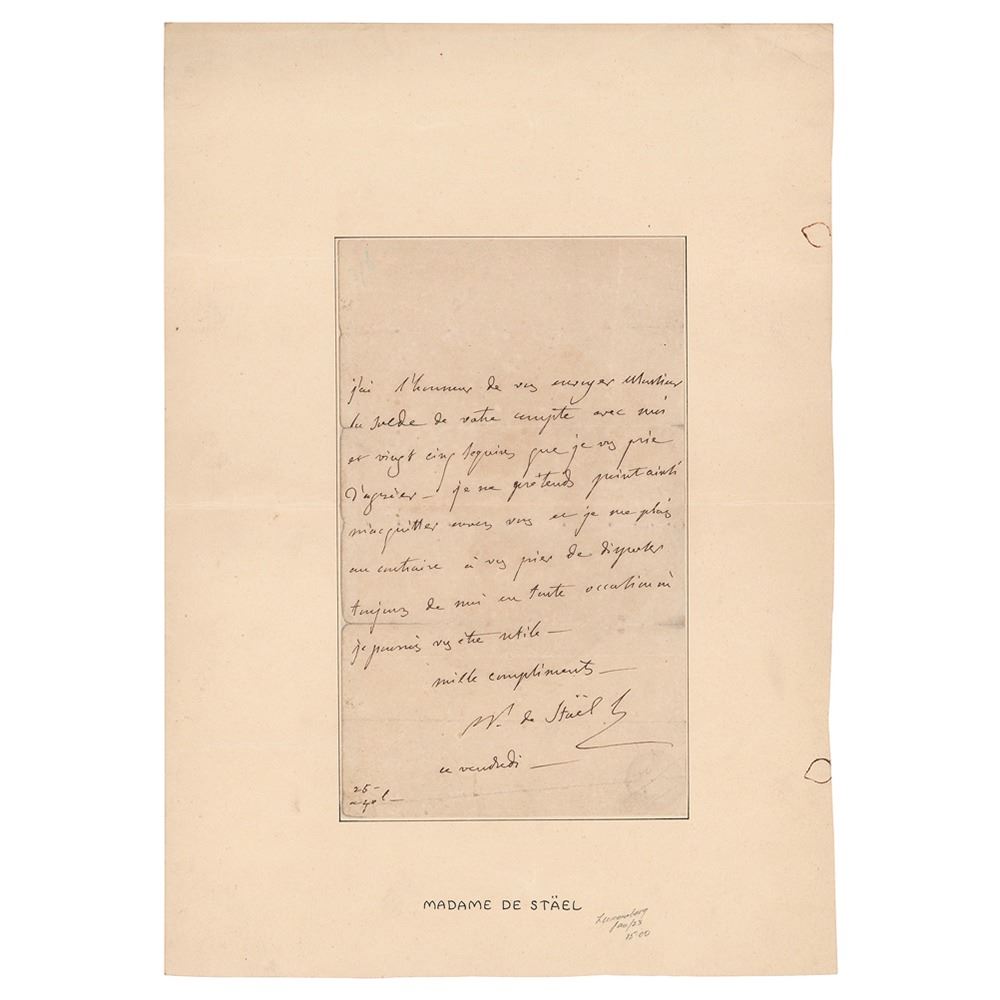 j'ai l'honneur de vs envoyer Monsieur
le solde de votre compte avec moi
et vingt cinq sequins que je vs prie
d'agréer — je ne prétends point ainsi
m'acquitter envers vous et je me plais
au contraire à vs prier de disposer
toujours de moi en toute occasion où
je pourrois vs être utile —
mille compliments —
N. de Stäel
ce vendredi —
25 —
MADAME DE STÄEL
Jan/28
15.00